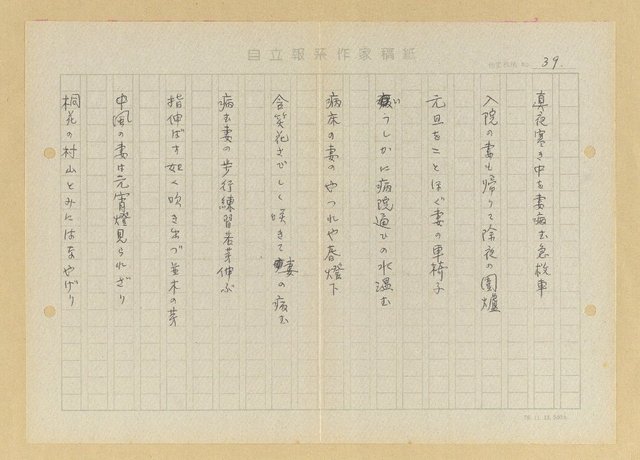 自立報系作家稿紙
39.
真夜寒き中を妻病む急救車
入院の妻も帰りて除夜の圍爐
元旦をことほぐ妻の車椅子
いつしかに病院通ひの水温む
病床の妻のやつれや春燈下
含笑花さびしく咲きて妻の病む
病む妻の歩行練習若芽伸ぶ
指伸ばす如く吹き出づ並木の芽
中風の妻は元宵燈見られざり
桐花の村山とみにはなやげり